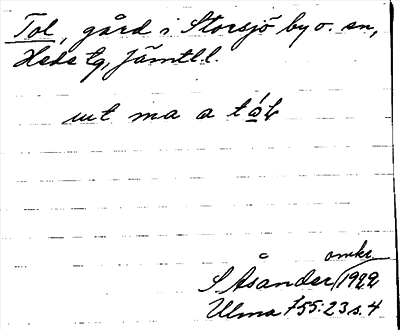 Tol, gård i Storsjö by o. sn,
Hede tg, Jämtl l.
ut ma a tól
omkr
S Åsander/1922
Ulma 755:23 s. 4